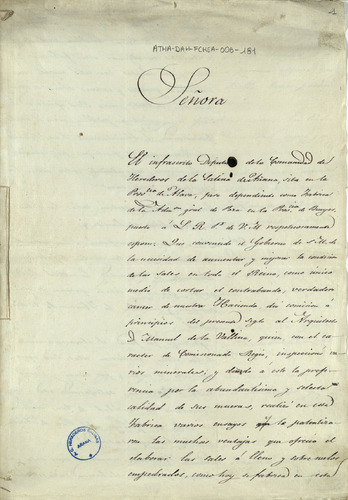 ATHA-DAH-FCHEA-006-181
Señora
El infrascrito Diputado de la Comunidad de
Herederos de la Salina de Añana, sita en la
Prov.cia de Alava, pero dependiendo como Fabrica
de la Adm.on gral de Rtas. en la Prov.cia de Burgos,
puesto á L. R. P.s de V. M. respetuosamente
espone: Que conociendo el Gobierno de S. M. de
la necesidad de aumentar y mejorar la condicion
de las sales en todo el Reino, como unico
medio de cortar el contrabando, verdadero
cancer de nuestra Hacienda, dió comision á
principios del presente siglo al Arquitecto
D. Manuel de la Ballina, quien, con el ca-
racter de Comisionado Regio, inspeccionó va-
rios minerales, y dando á este la prefe-
rencia por la abundantisima y selecta
calidad de sus mueras, realizó en esta
Fabrica varios ensayos que la patentiza-
ron las muchas ventajas que ofrecia el
elaborar las sales á lleno y sobre suelos
empedrados, como hoy se fabrica en esta
ARABA